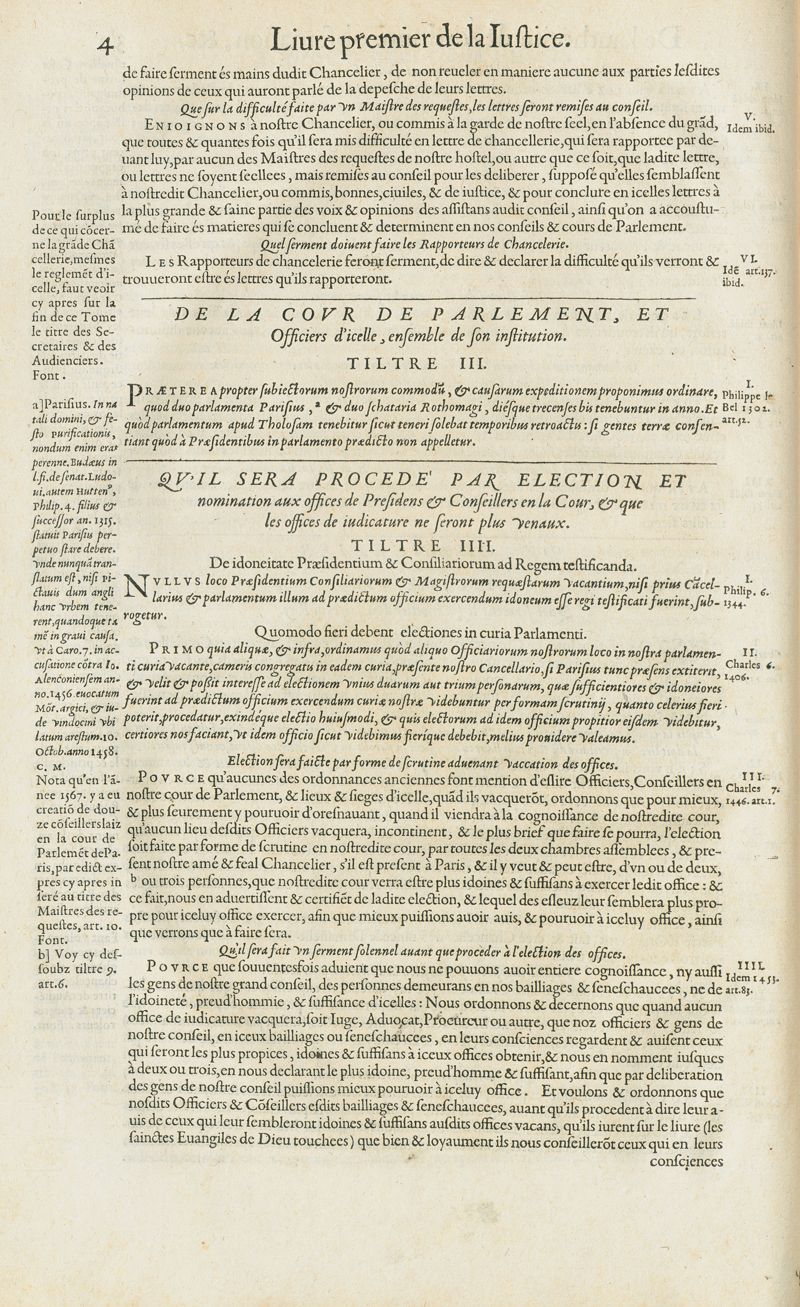 4
Liure premier de la Iuſtice.
de faire ſerment és mains dudit Chancelier, de non reueler en maniere aucune aux parties leſdites
opinions de ceux qui auront parlé de la depeſche de leurs lettres.
Que ſur la difficulté faite par vn Maiſtre des requeſtes, les lettres ſeront remiſes au conſeil.
ENIOIGNONS à noſtre Chancelier, ou commis à la garde de noſtre ſeel, en l'abſence du grãd,
que toutes & quantes fois qu'il ſera mis difficulté en lettre de chancellerie, qui ſera rapportee par de-
uant luy, par aucun des Maiſtres des requeſtes de noſtre hoſtel, ou autre que ce ſoit, que ladite lettre,
ou lettres ne ſoyent ſeellees, mais remiſes au conſeil pour les deliberer, ſuppoſé qu'elles ſemblaſſent
à noſtredit Chancelier, ou commis, bonnes, ciuiles, & de iuſtice, & pour conclure en icelles lettres à
la plus grande & ſaine partie des voix & opinions des aſſiſtans audit conſeil, ainſi qu'on a accouſtu-
mé de faire és matieres qui ſe concluent & determinent en nos conſeils & cours de Parlement.
V.
Idem ibid.
Quel ſerment doiuent faire les Rapporteurs de Chancelerie.
LES Rapporteurs de chancelerie feront ſerment, de dire & declarer la difficulté qu'ils verront &
trouueront eſtre és lettres qu'ils rapporteront.
VI.
Idẽ art.137.
ibid.
Pour le ſurplus
de ce qui cõcer-
ne la grãde Chã
cellerie, meſmes
le reglemẽt d'i-
celle, faut veoir
cy apres ſur la
fin de ce Tome
le titre des Se-
cretaires & des
Audienciers.
Font.
DE LA COVR DE PARLEMENT, ET
Officiers d'icelle, enſemble de ſon inſtitution.
TILTRE III.
PRÆTEREA propter ſubiectorum noſtrorum commodũ, & cauſarum expeditionem proponimus ordinare,
quod duo parlamenta Pariſius, ᵃ & duo ſchataria Rothomagi, dieſque trecenſes bis tenebuntur in anno. Et
quòd parlamentum apud Tholoſam tenebitur ſicut teneri ſolebat temporibus retroactis: ſi gentes terræ conſen-
tiant quòd à Præſidentibus in parlamento prædicto non appelletur.
I.
Philippe le
Bel 1302.
art.52.
a] Pariſius. In na
tali domini, & fe-
ſto purificationis,
nondum enim erat
perenne. Budæus in
l.fi. de ſenat. Ludo-
ui. autem Huttenº,
Philip. 4. filius &
ſucceſſor an. 1315.
ſtatuit Pariſius per-
petuo ſtare debere.
Vnde nunquã tran-
ſlatum eſt, niſi vi-
ctauis dum angli
hanc vrbem tene-
rent, quandoque tã
mẽ in graui cauſa,
vt à Caro. 7. in ac-
cuſatione cõtra Io.
Alenconienſem an-
no. 1456. euocatum
Mõt. argici, & in-
de Vindocini vbi
latum areſtum. 10.
Octob. anno 1458.
C. M.
QV'IL SERA PROCEDE' PAR ELECTION ET
nomination aux offices de Preſidens & Conſeillers en la Cour, & que
les offices de iudicature ne ſeront plus venaux.
TILTRE IIII.
De idoneitate Præſidentium & Conſiliariorum ad Regem teſtificanda.
NVLLVS loco Præſidentium Conſiliariorum & Magiſtrorum requæſtarum vacantium, niſi prius Cãcel-
larius & parlamentum illum ad prædictum officium exercendum idoneum eſſe regi teſtificati fuerint, ſub-
rogetur.
I.
Philip. 6.
1344.
Quomodo fieri debent electiones in curia Parlamenti.
PRIMO quia aliquæ, & infra, ordinamus quòd aliquo Officiariorum noſtrorum loco in noſtra parlamen-
ti curia vacante, cameris congregatis in eadem curia, præſente noſtro Cancellario, ſi Pariſius tunc præſens extiterit,
& velit & poſſit intereſſe ad electionem vnius duarum aut trium perſonarum, quæ ſufficientiores & idoneiores
fuerint ad prædictum officium exercendum curiæ noſtræ videbuntur per formam ſcrutinij, quanto celerius fieri
poterit, procedatur, exindéque electio huiuſmodi, & quis electorum ad idem officium propitior eiſdem videbitur,
certiores nos faciant, vt idem officio ſicut videbimus fierique debebit, melius prouidere valeamus.
II.
Charles 6.
1406.
Election ſera faicte par forme de ſcrutine aduenant vaccation des offices.
POVRCE qu'aucunes des ordonnances anciennes font mention d'eſlire Officiers, Conſeillers en
noſtre cour de Parlement, & lieux & ſieges d'icelle, quãd ils vacquerõt, ordonnons que pour mieux,
& plus ſeurement y pouruoir d'oreſnauant, quand il viendra à la cognoiſſance de noſtredite cour,
qu'aucun lieu deſdits Officiers vacquera, incontinent, & le plus brief que faire ſe pourra, l'election
ſoit faite par forme de ſcrutine en noſtredite cour, par toutes les deux chambres aſſemblees, & pre-
ſent noſtre amé & feal Chancelier, s'il eſt preſent à Paris, & il y veut & peut eſtre, d'vn ou de deux,
ᵇ ou trois perſonnes, que noſtredite cour verra eſtre plus idoines & ſuffiſans à exercer ledit office: &
ce fait, nous en aduertiſſent & certifiẽt de ladite election, & lequel des eſleuz leur ſemblera plus pro-
pre pour iceluy office exercer, afin que mieux puiſſions auoir auis, & pouruoir à iceluy office, ainſi
que verrons que à faire ſera.
III.
Charles 7.
1446. art.1.
Nota qu'en l'ã-
nee 1567. y a eu
creatiõ de dou-
ze cõſeillers laiz
en la cour de
Parlemẽt de Pa-
ris, par edict ex-
pres cy apres in
ſeré au titre des
Maiſtres des re-
queſtes, art. 10.
Font.
b] Voy cy deſ-
ſoubz tiltre 9.
art.6.
Qu'il ſera fait vn ſerment ſolennel auant que proceder à l'election des offices.
POVRCE que ſouuentesfois aduient que nous ne pouuons auoir entiere cognoiſſance, ny auſſi
les gens de noſtre grand conſeil, des perſonnes demeurans en nos bailliages & ſeneſchaucees, ne de
l'idoineté, preud'hommie, & ſuffiſance d'icelles: Nous ordonnons & decernons que quand aucun
office de iudicature vacquera, ſoit Iuge, Aduocat, Procureur ou autre, que noz officiers & gens de
noſtre conſeil, en iceux bailliages ou ſeneſchaucees, en leurs conſciences regardent & auiſent ceux
qui ſeront les plus propices, idoines & ſuffiſans à iceux offices obtenir, & nous en nomment iuſques
à deux ou trois, en nous declarant le plus idoine, preud'homme & ſuffiſant, afin que par deliberation
des gens de noſtre conſeil puiſſions mieux pouruoir à iceluy office. Et voulons & ordonnons que
noſdits Officiers & Cõſeillers eſdits bailliages & ſeneſchaucees, auant qu'ils procedent à dire leur a-
uis de ceux qui leur ſembleront idoines & ſuffiſans auſdits offices vacans, qu'ils iurent ſur le liure (les
ſainctes Euangiles de Dieu touchees) que bien & loyaument ils nous conſeillerõt ceux qui en leurs
conſciences
IIII.
Idem 1453.
art.83.